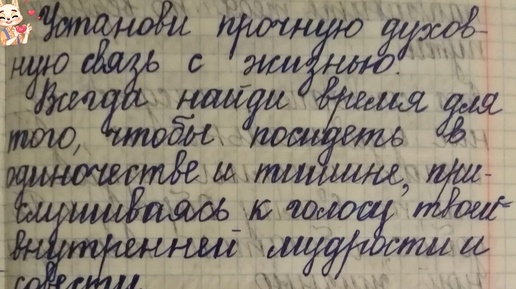 Установи прочную духов-
ную связь с жизнью.
Всегда найди время для
того, чтобы посидеть в
одиночестве и тишине, при-
слушиваясь к голосу твоей
внутренней мудрости и
совести.